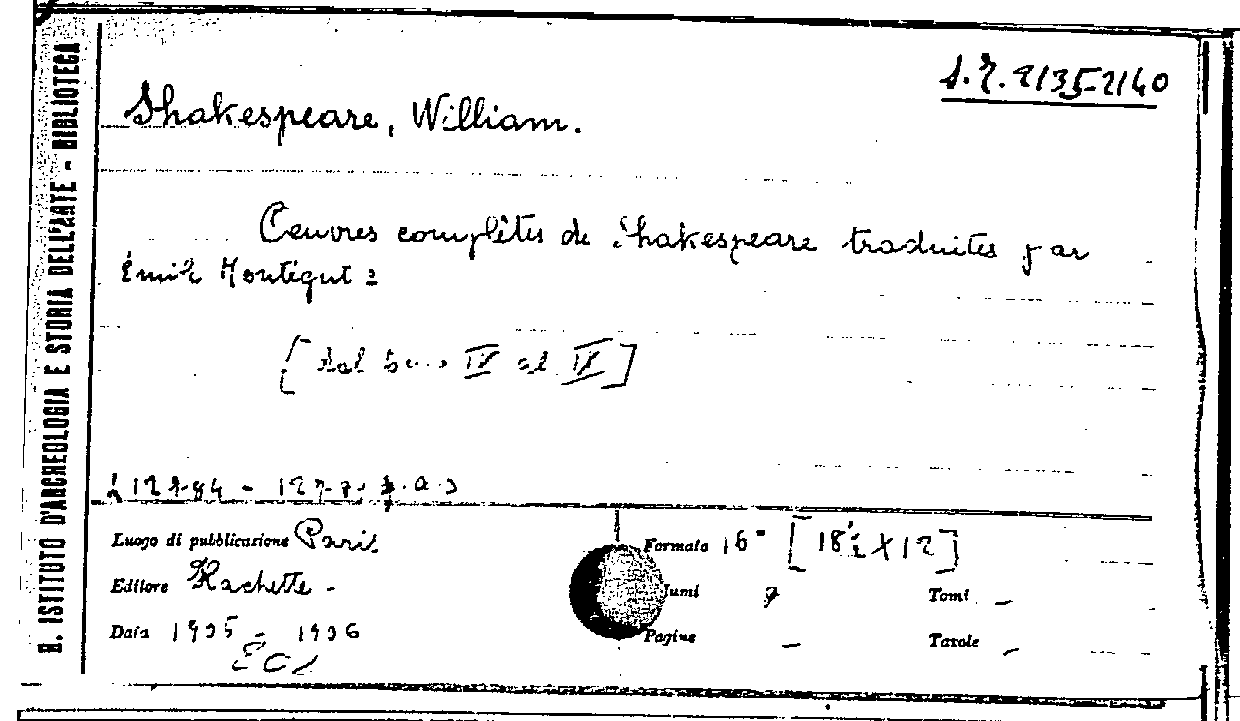 R. ISTITUTO D'ARCHEOLOGIA E STORIA DELL'ARTE - BIBLIOTECA
S.R. 2135-2140
Shakespeare, William.
Œuvres complètes de Shakespeare traduites par
Émile Montégut :
[dal IV al IX]
Luogo di pubblicazione Paris
Formato 16° [18½ X 12]
Editore Hachette -
lumi 7
Tomi -
Data 1905 - 1906
Pagine -
Tavole -